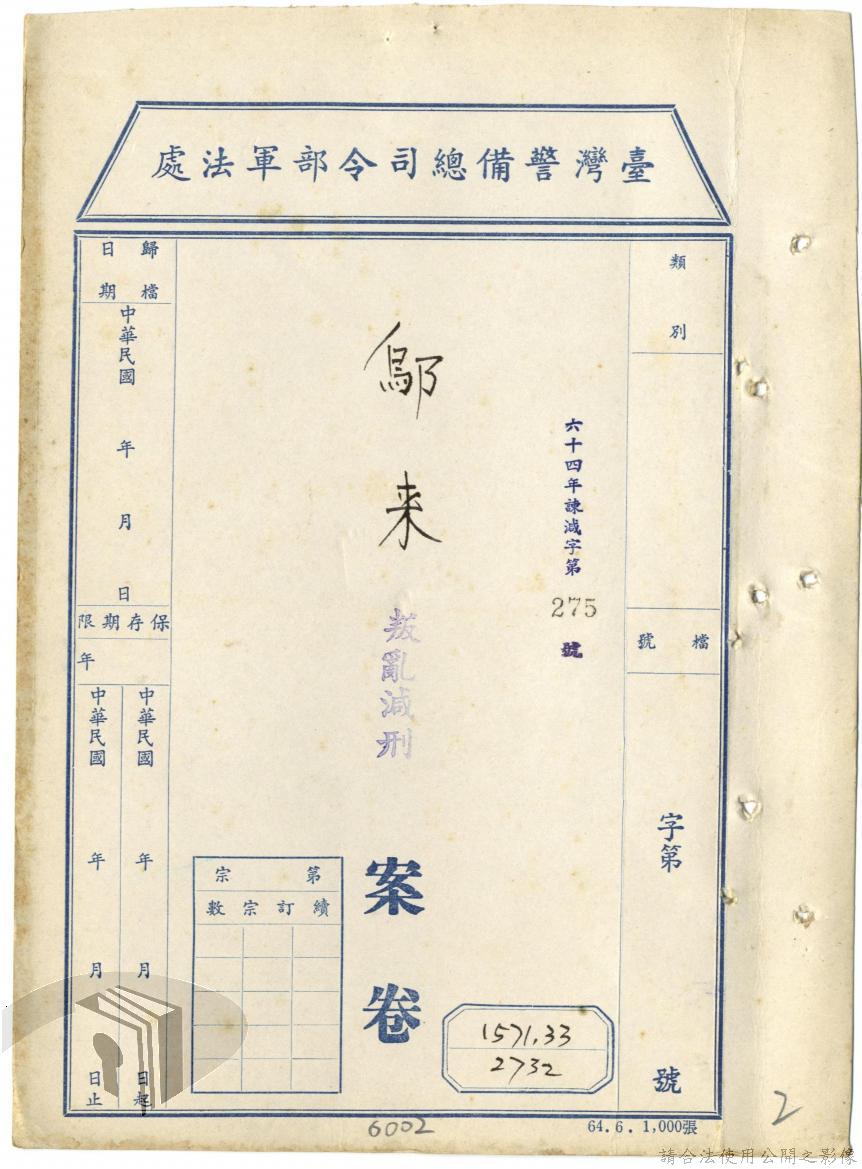 臺灣警備總司令部軍法處
類別
檔號
字第
號
六十四年諫減字第
275
號
鄔来
叛亂減刑
案卷
第宗
續訂宗數
1571.33
2732
歸檔日期
中華民國 年 月 日
保存期限
年
中華民國 年 月 日起
中華民國 年 月 日止
6002
64.6. 1,000張
2
請合法使用公開之影像